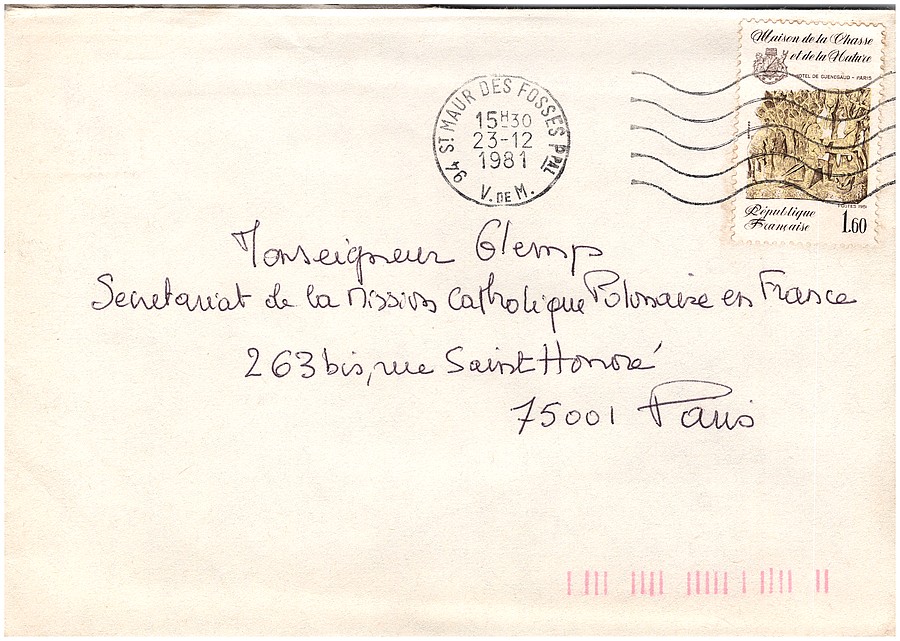 Maison de la Chasse
et de la Nature
HOTEL DE GUENEGAUD - PARIS
94 ST MAUR DES FOSSES PPAL
15H30
23-12
1981
V. DE M.
République
Française
1.60
Monseigneur Glemp
Secretariat de la Mission Catholique Polonaise en France
263 bis, rue Saint Honoré
75001 Paris